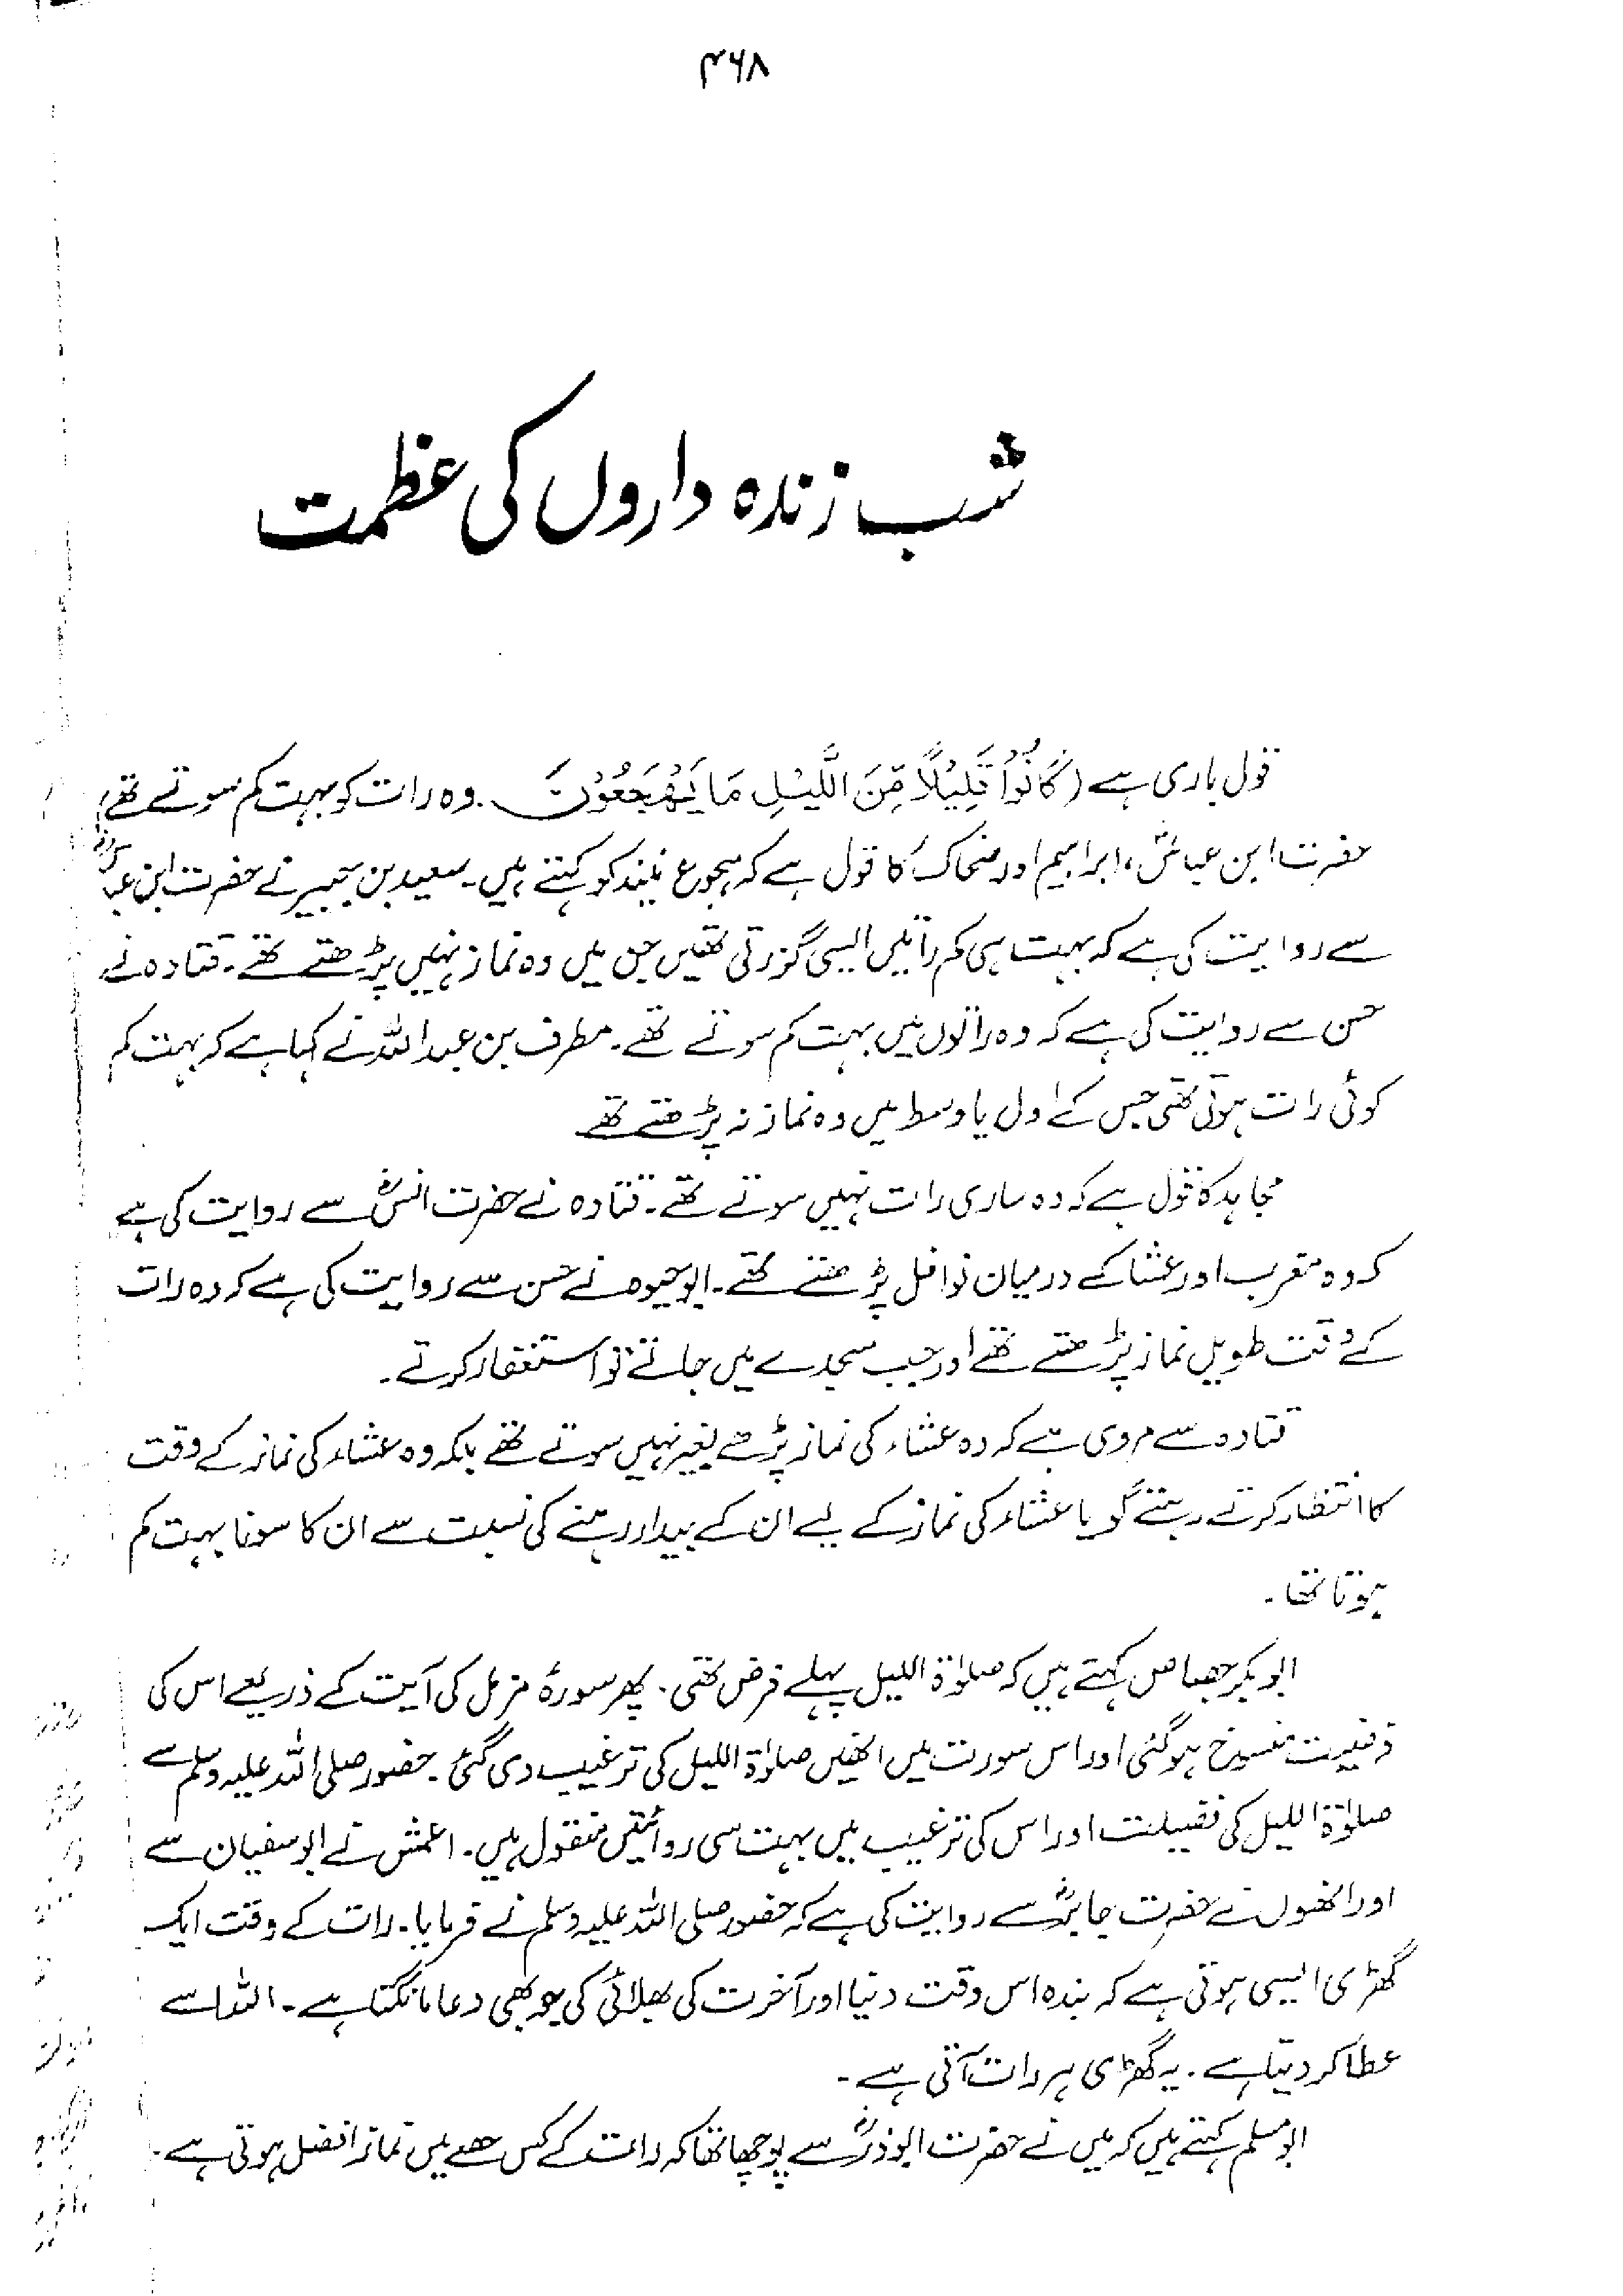 ۴۶۸
شب زندہ داروں کی عظمت
قول باری ہے (كَانُوْا قَلِيْلًا مِّنَ اللَّيْلِ مَا يَهْجَعُوْنَ۔ وہ رات کو بہت کم سوتے تھے)
حضرت ابن عباسؓ، ابراہیم اور ضحاک کا قول ہے کہ ہجوع نیند کو کہتے ہیں۔ سعید بن جبیر نے حضرت ابن عباسؓ
سے روایت کی ہے کہ بہت ہی کم راتیں ایسی گزرتی تھیں جن میں وہ نماز نہیں پڑھتے تھے۔ قتادہ نے
حسن سے روایت کی ہے کہ وہ راتوں میں بہت کم سوتے تھے۔ مطرف بن عبداللہ نے کہا ہے کہ بہت کم
کوئی رات ہوتی تھی جس کے اول یا وسط میں وہ نماز نہ پڑھتے تھے
مجاہد کا قول ہے کہ وہ ساری رات نہیں سوتے تھے۔ قتادہ نے حضرت انسؓ سے روایت کی ہے
کہ وہ مغرب اور عشا کے درمیان نوافل پڑھتے تھے۔ ابوحیوہ نے حسن سے روایت کی ہے کہ وہ رات
کے وقت طویل نماز پڑھتے تھے اور جب سجدے میں جاتے تو استغفار کرتے۔
قتادہ سے مروی ہے کہ وہ عشاء کی نماز پڑھے بغیر نہیں سوتے تھے بلکہ وہ عشاء کی نماز کے وقت
کا انتظار کرتے رہتے گویا عشاء کی نماز کے لیے ان کے بیدار رہنے کی نسبت سے ان کا سونا بہت کم
ہوتا تھا۔
ابوبکر جصاص کہتے ہیں کہ صلوٰۃ اللیل پہلے فرض تھی۔ پھر سورۂ مزمل کی آیت کے ذریعے اس کی
فرضیت منسوخ ہوگئی اور اس سورت میں انھیں صلوٰۃ اللیل کی ترغیب دی گئی۔ حضور صلی اللہ علیہ وسلم سے
صلوٰۃ اللیل کی فضیلت اور اس کی ترغیب میں بہت سی روائتیں منقول ہیں۔ اعمش نے ابوسفیان سے
اور انھوں نے حضرت جابرؓ سے روایت کی ہے کہ حضور صلی اللہ علیہ وسلم نے فرمایا۔ رات کے وقت ایک
گھڑی ایسی ہوتی ہے کہ بندہ اس وقت دنیا اور آخرت کی بھلائی کی جو بھی دعا مانگتا ہے۔ اللہ اسے
عطا کر دیتا ہے۔ یہ گھڑی ہر رات آتی ہے۔
ابومسلم کہتے ہیں کہ میں نے حضرت ابوذرؓ سے پوچھا تھا کہ رات کے کس حصے میں نماز افضل ہوتی ہے۔